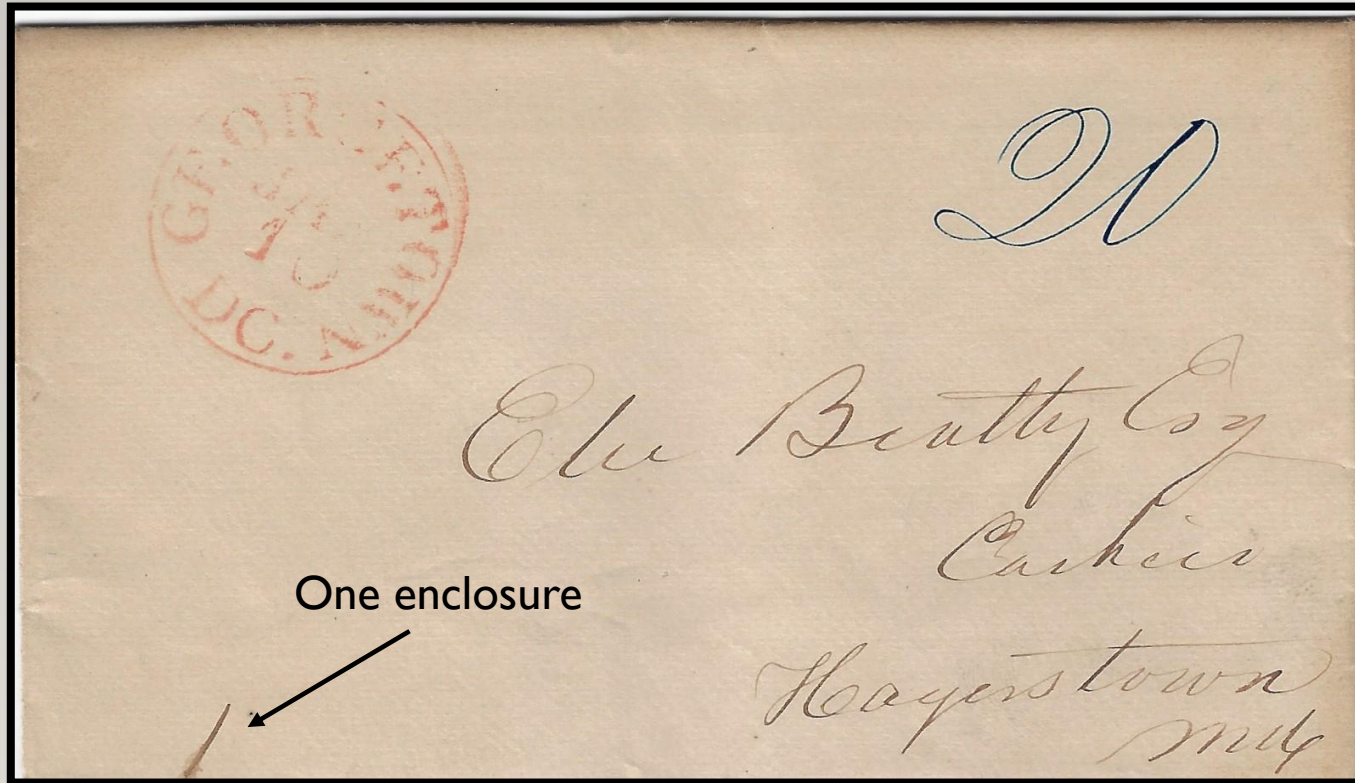 GEORGETOWN
DC.
20
Elie Beatty Esq
Cashier
Hagerstown
Md
One enclosure
1